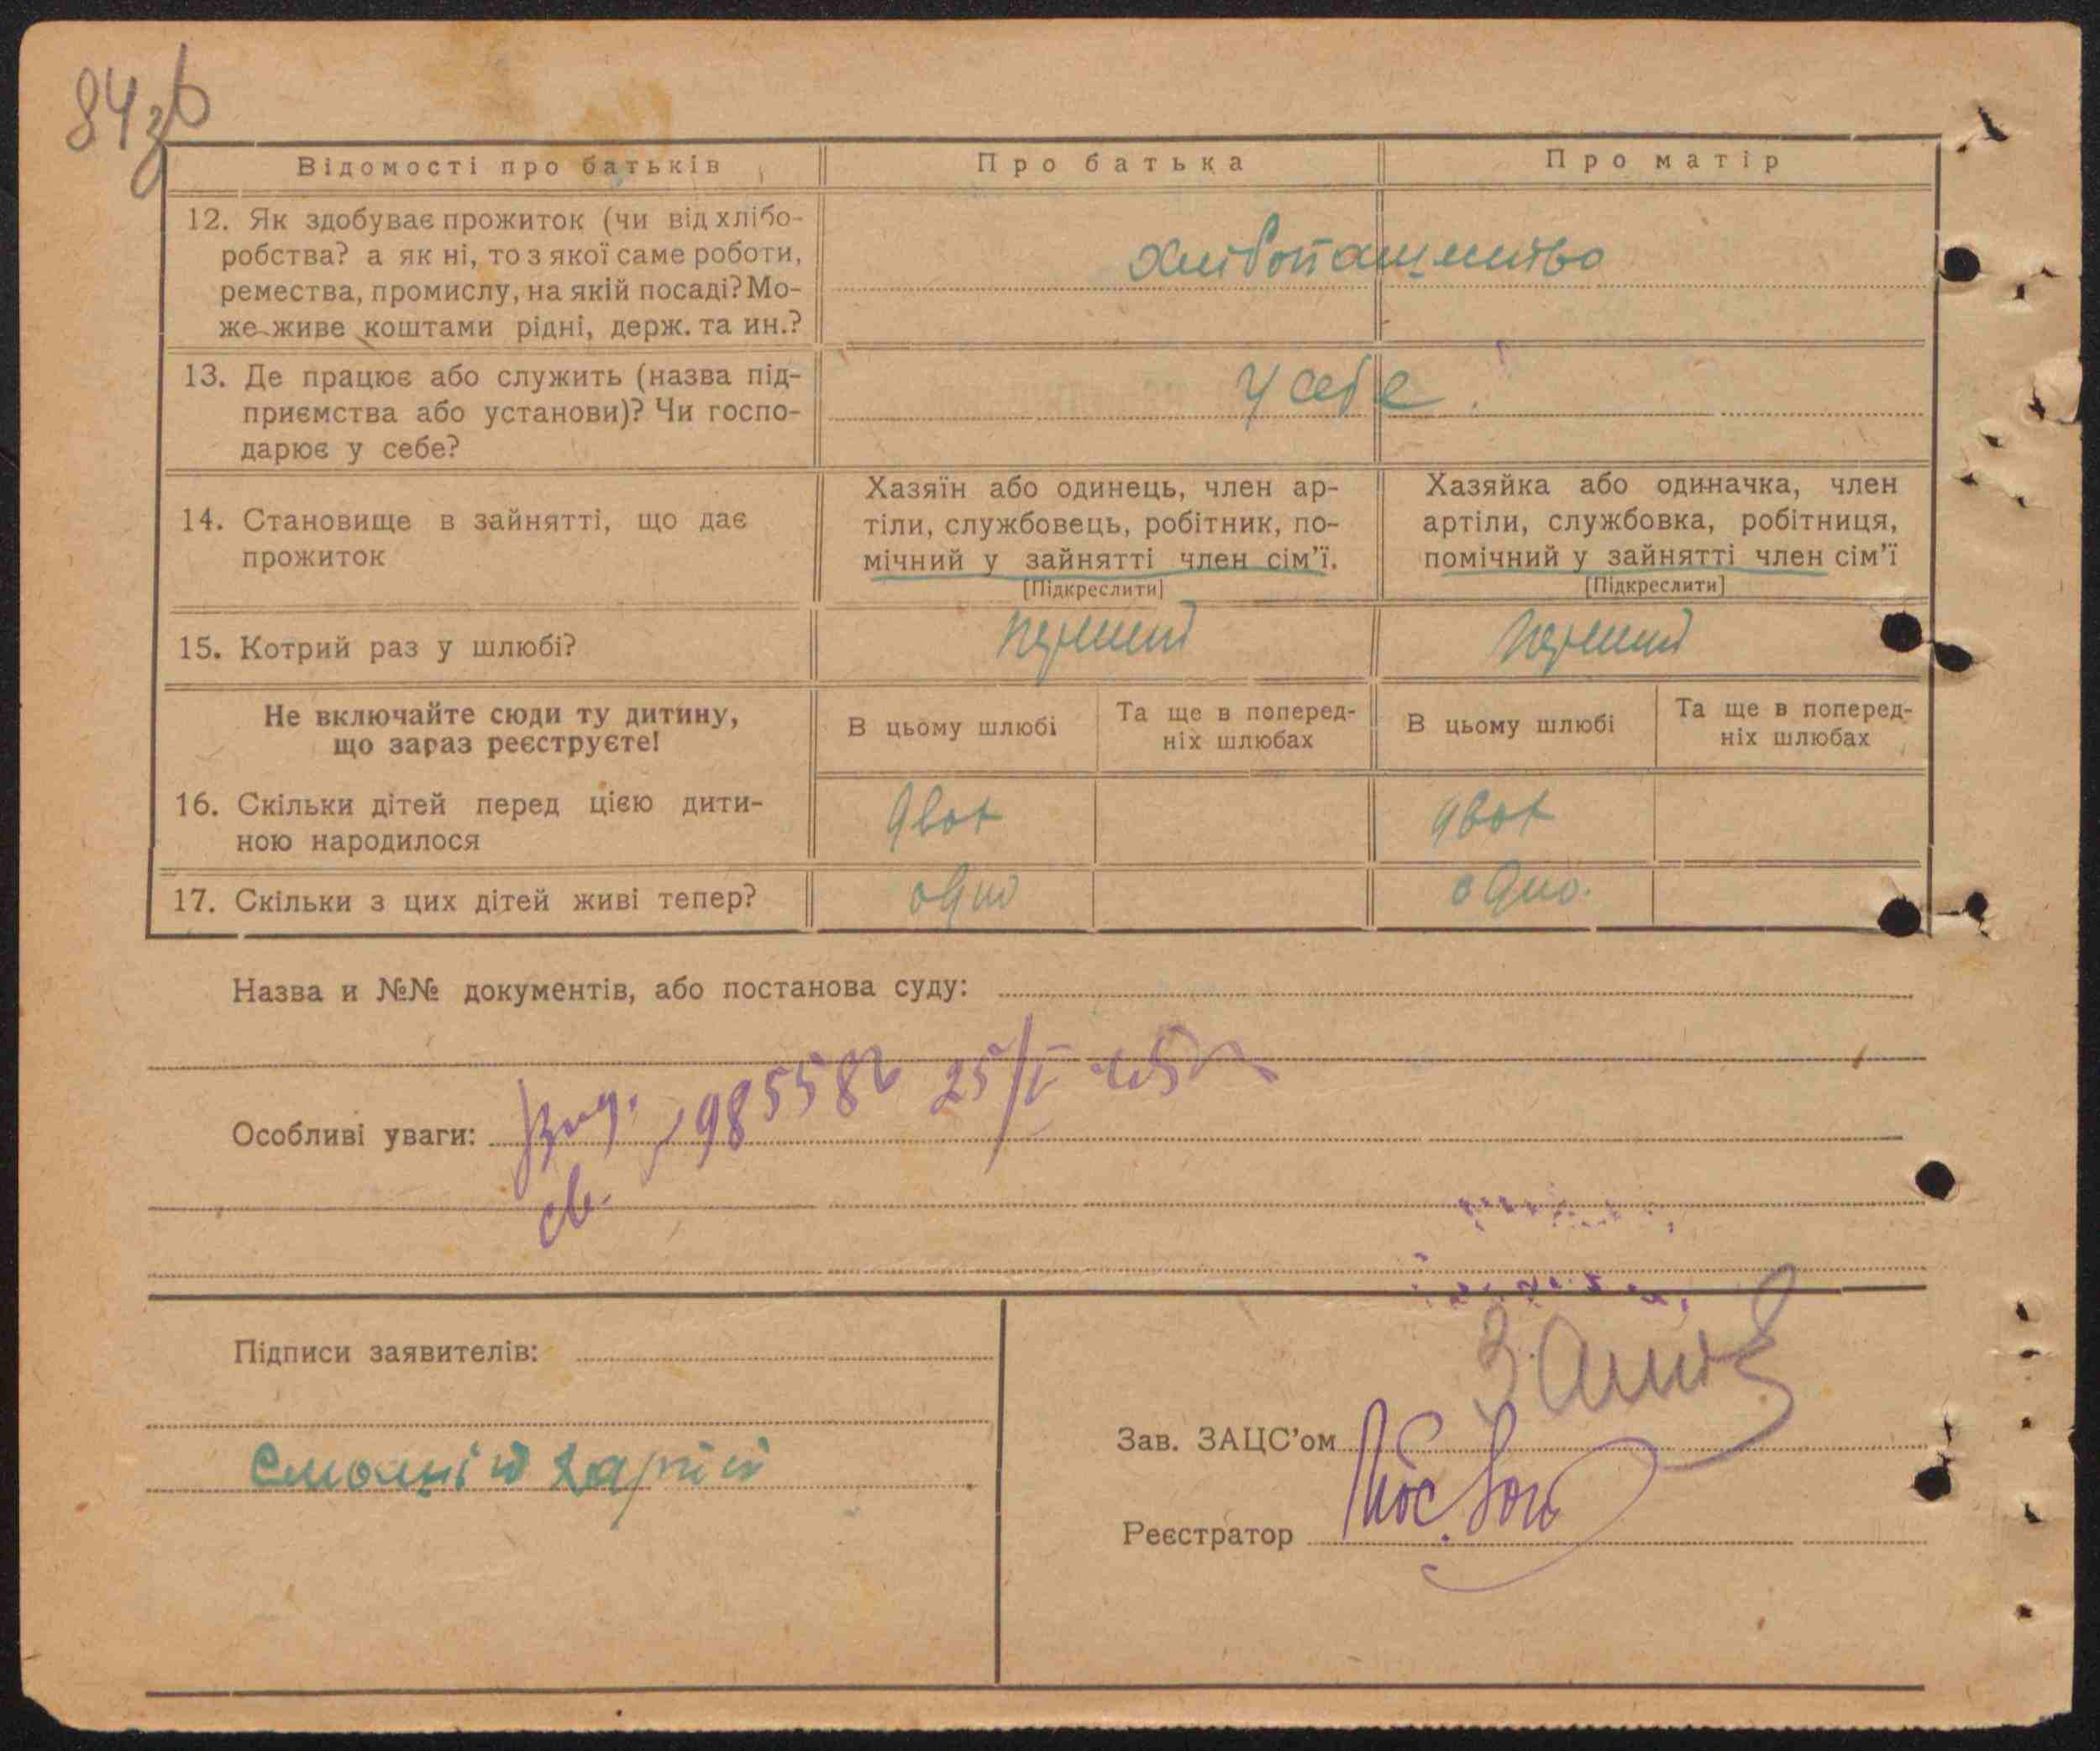 84зв
Відомості про батьків
Про батька
Про матір
12. Як здобуває прожиток (чи від хлібо-
робства? а як ні, то з якої саме роботи,
ремества, промислу, на якій посаді? Мо-
же живе коштами рідні, держ. та ин.?
хлібопашество
13. Де працює або служить (назва під-
приємства або установи)? Чи госпо-
дарює у себе?
у себе.
14. Становище в зайнятті, що дає
прожиток
Хазяїн або одинець, член ар-
тіли, службовець, робітник, по-
мічний у зайнятті член сім'ї.
[Підкреслити]
Хазяйка або одиначка, член
артіли, службовка, робітниця,
помічний у зайнятті член сім'ї
[Підкреслити]
15. Котрий раз у шлюбі?
первий
первий
Не включайте сюди ту дитину,
що зараз реєструєте!
В цьому шлюбі
Та ще в поперед-
ніх шлюбах
В цьому шлюбі
Та ще в поперед-
ніх шлюбах
16. Скільки дітей перед цією дити-
ною народилося
двох
двох
17. Скільки з цих дітей живі тепер?
одно
одно.
Назва и №№ документів, або постанова суду:
Особливі уваги:
св.
Підписи заявителів:
Зав. ЗАЦС'ом
Реєстратор